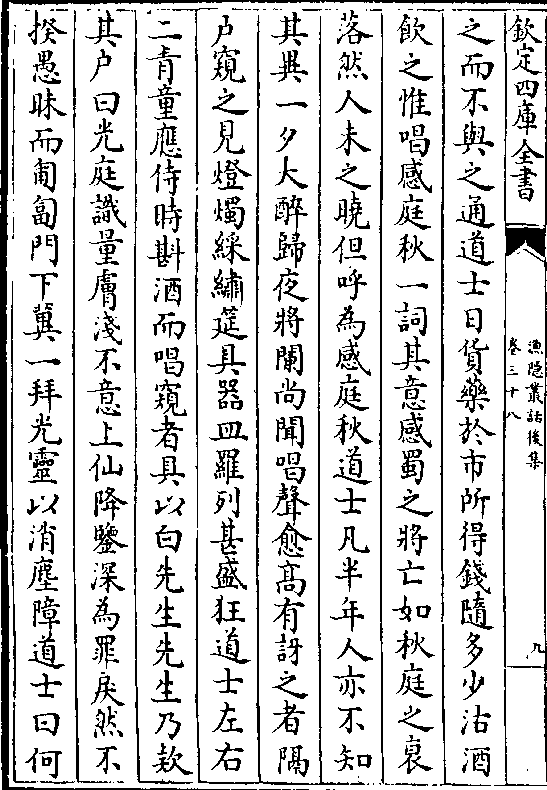 欽定四庫全書
漁隠叢話後集
卷三十八
九
之而不與之通道士日貨藥於市所得錢隨多少沽酒
飲之惟唱感庭秋一詞其意感蜀之將亡如秋庭之衰
落然人未之曉但呼為感庭秋道士凡半年人亦不知
其異一夕大醉歸夜將闌尚聞唱聲愈髙有訝之者隔
户窺之見燈燭綵繡筵具器皿羅列甚盛狂道士左右
二青童應侍時斟酒而唱窺者具以白先生先生乃欵
其户曰光庭識量膚淺不意上仙降鑒深為罪戾然不
揆愚昧而匍匐門下冀一拜光靈以消塵障道士曰何